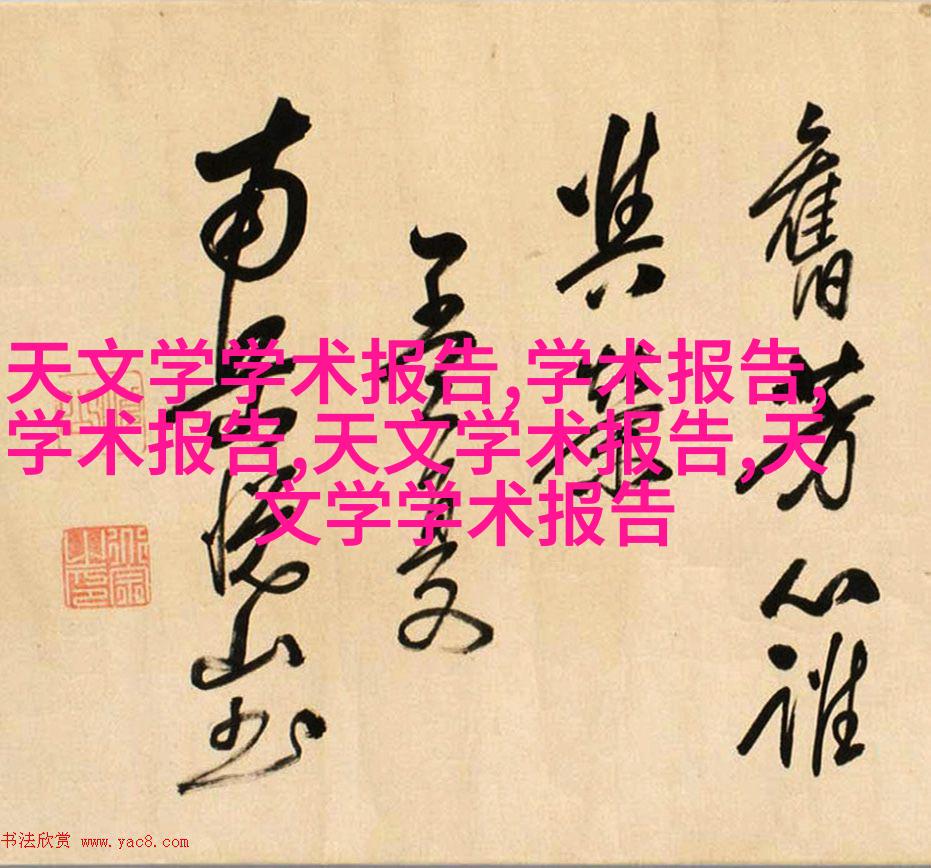 舊芳心誰
與蘭
孟夏
南岳悅山書
天文学学术报告,学术报告,
学术报告,天文学术报告,天
文学学术报告
书法欣赏 www.yac8.com